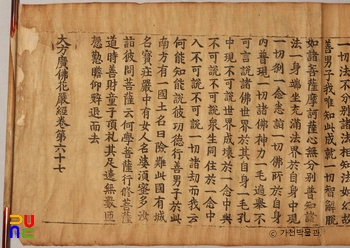 一切法不分別諸法相知法如幻故
善男子我唯知此成就一切智解脫
如諸菩薩摩訶薩心無分別普知諸
法一身端坐充滿法界於自身中現
一切刹一念悉詣一切佛所於自身
內普現一切諸佛神力一毛遍擧不
可言說諸佛世界於其自身一毛孔
中現不可說世界成壞於一念中與
不可說不可說衆生同住於一念中
入不可說不可說一切諸劫而我云
何能知能說彼功德行善男子於此
南方有一國土名曰險難此國有城
名寶莊嚴中有女人名婆須蜜多汝
詣彼問菩薩云何學菩薩行修菩薩
道時善財童子頂禮其足遶無數帀
慇懃瞻仰辭退而去
大方廣佛花嚴經卷第六十七
PU
RU
NE
© 가천박물관